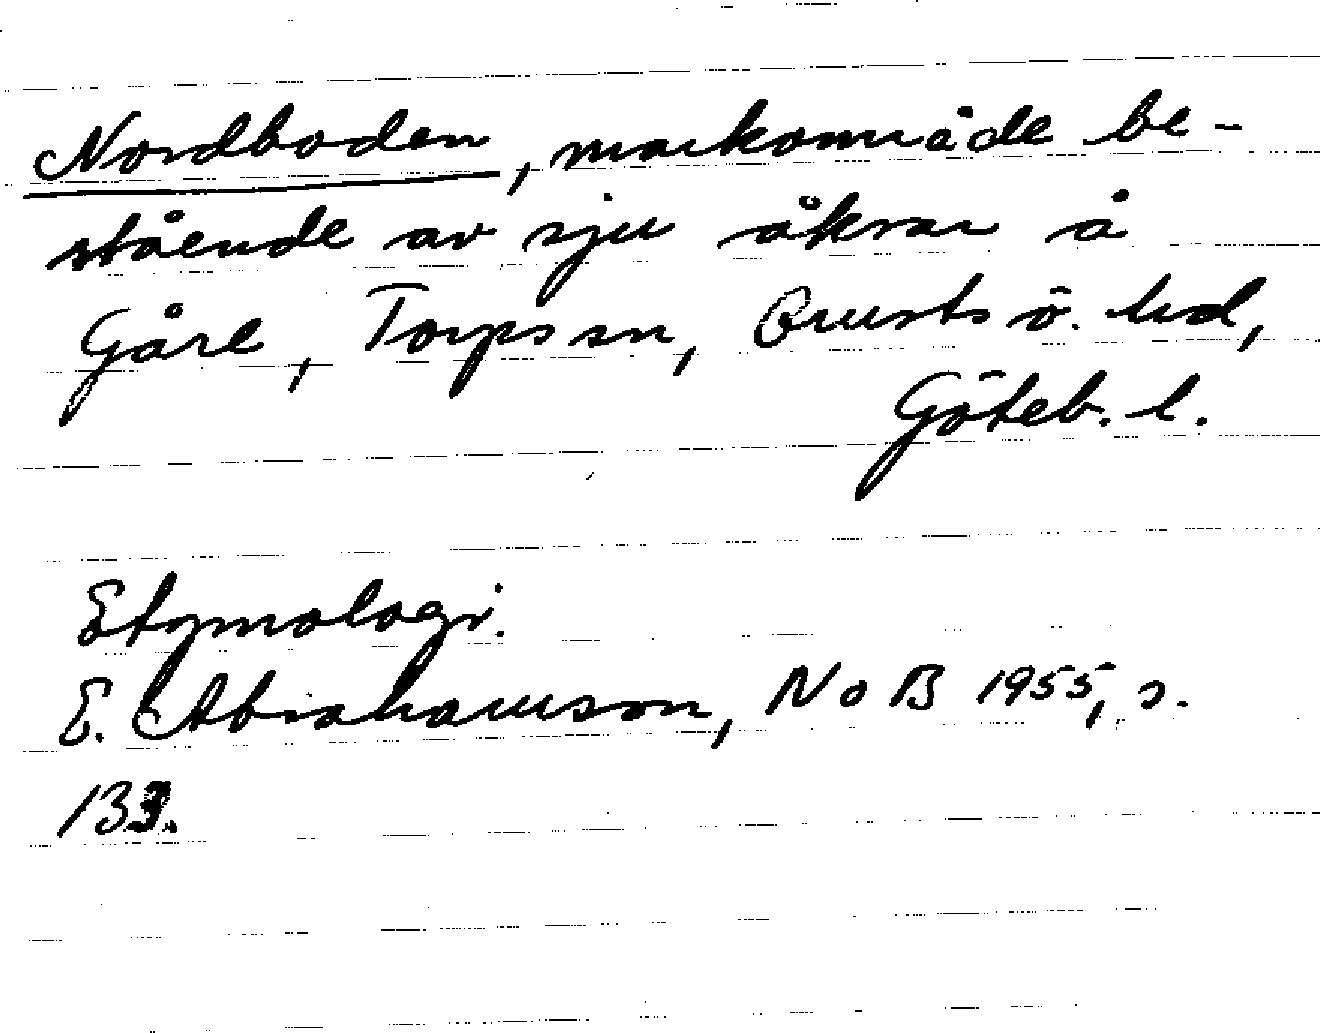 Nordboden, markområde be-
stående av sju åkrar å
Gåre, Torps sn, Orusts ö. hd,
Göteb. l.
Etymologi.
E. Abrahamson, NoB 1955, s.
133.